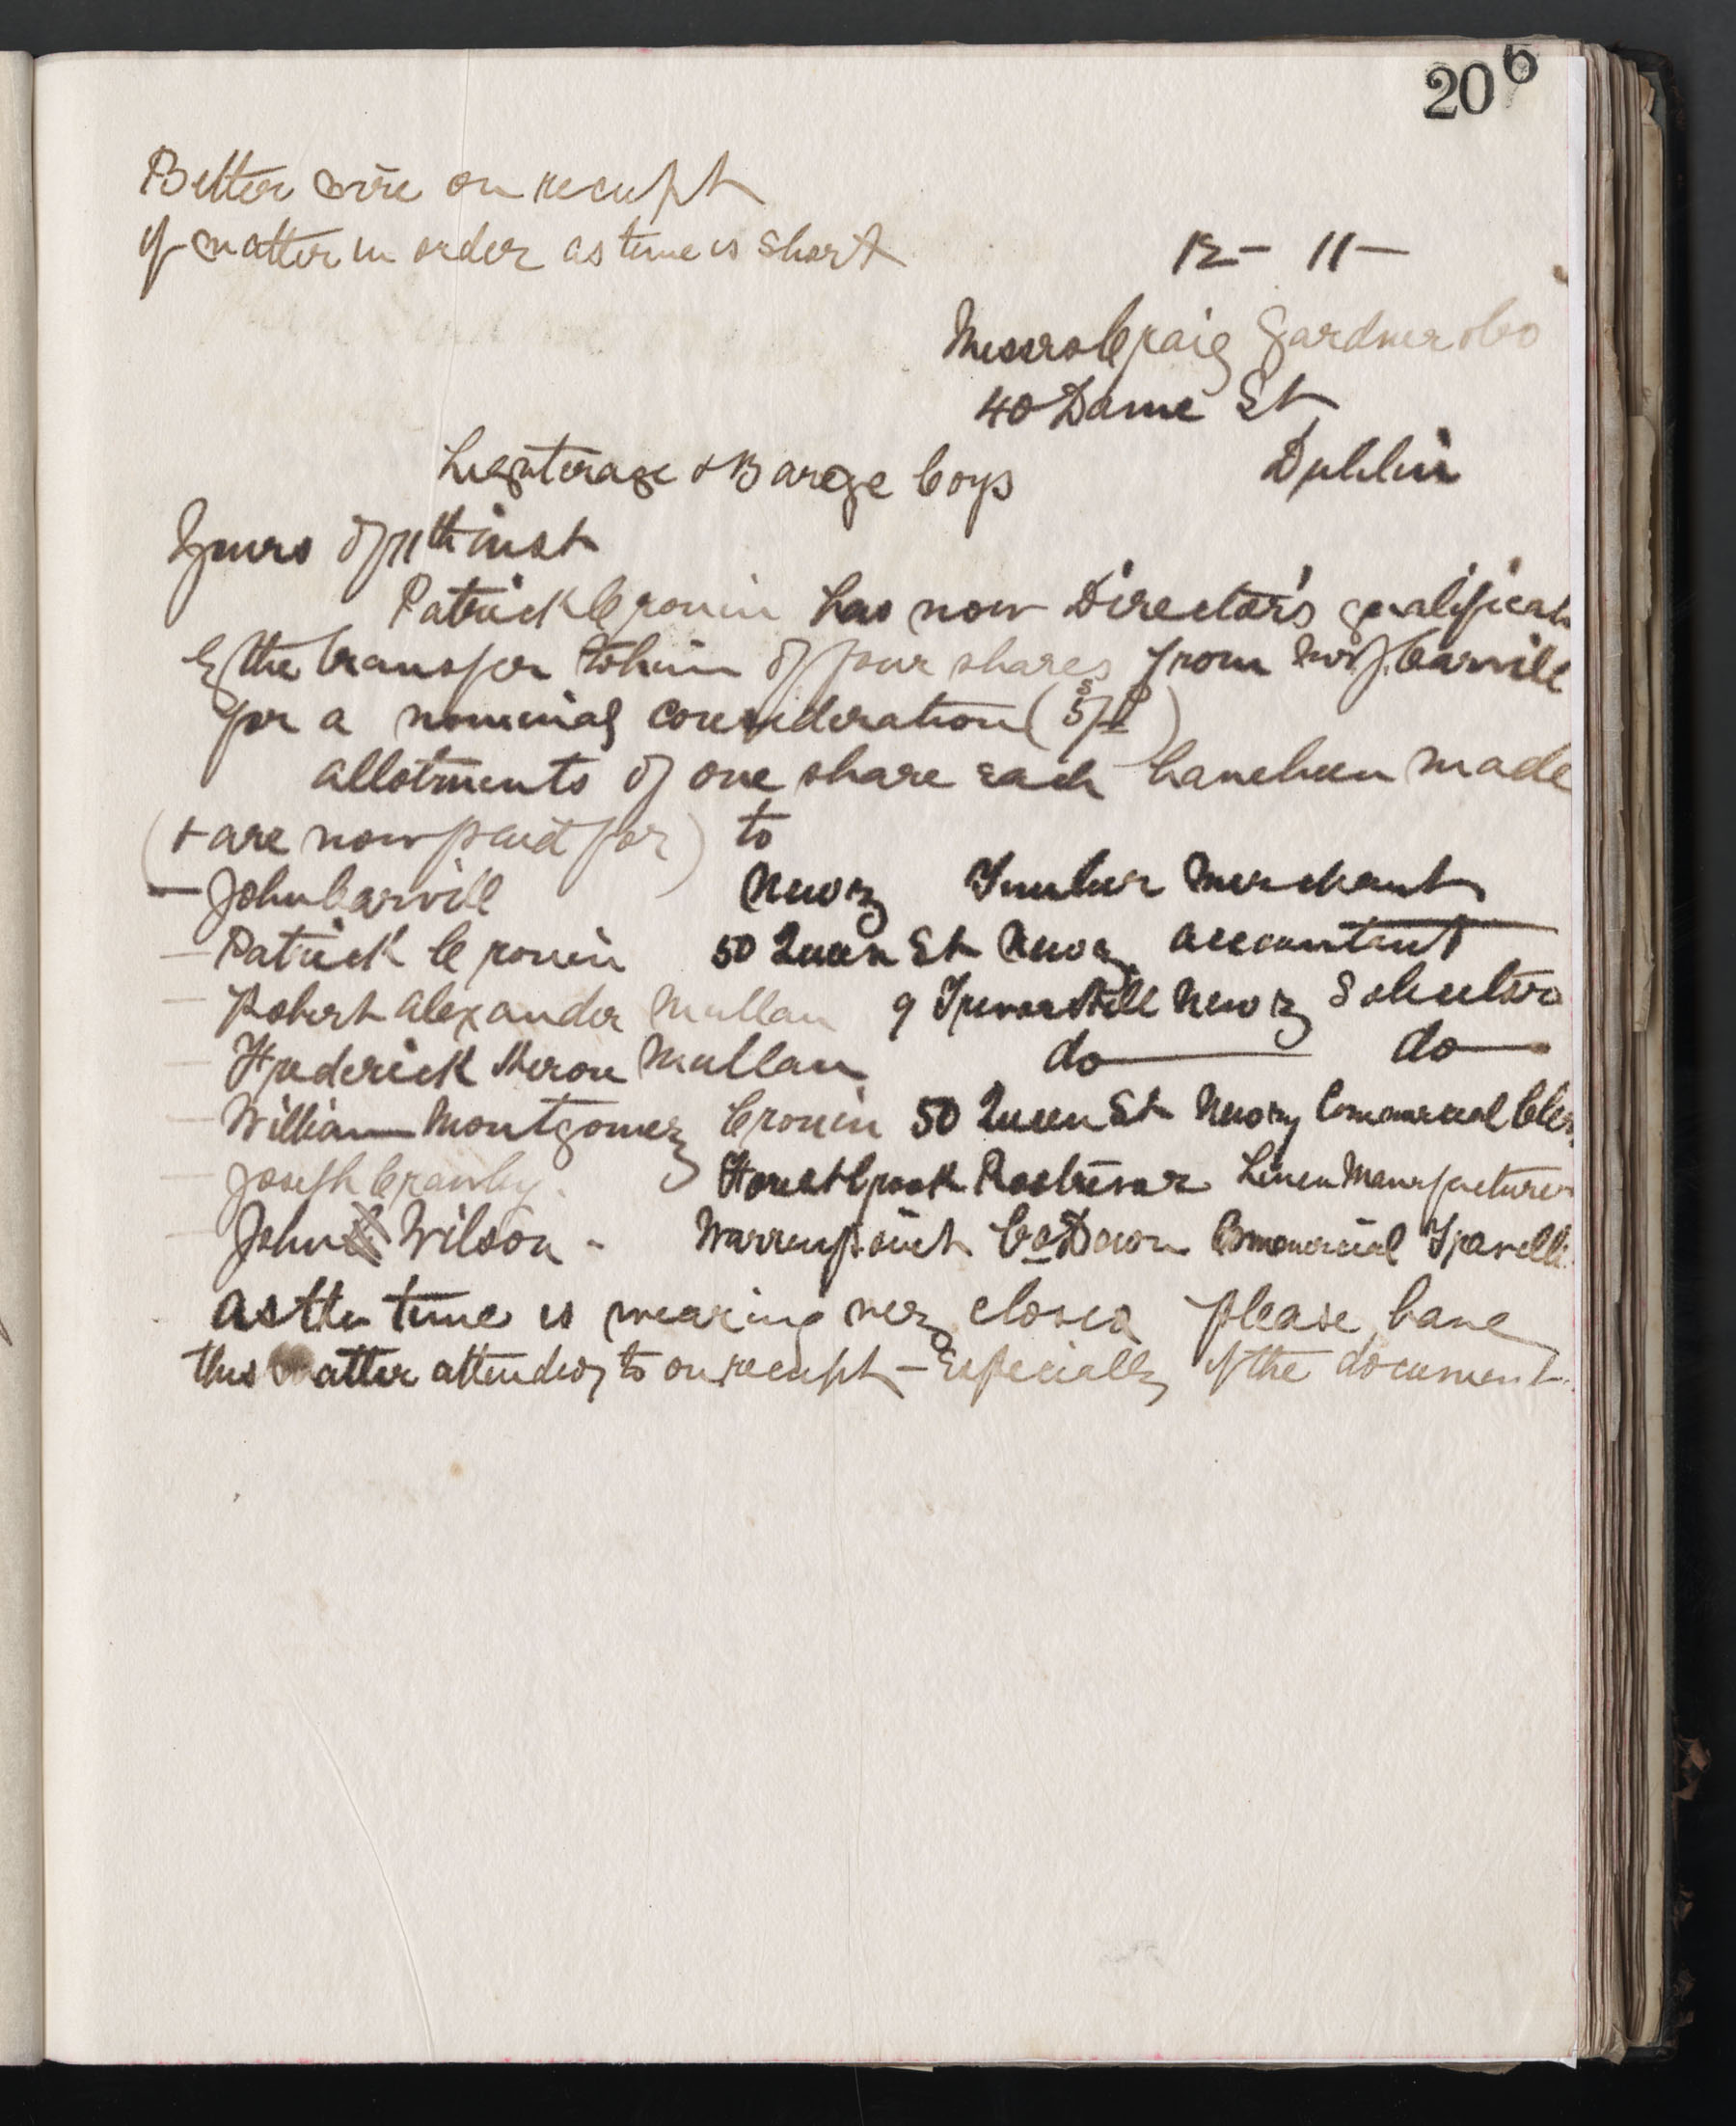 206
Better wire on receipt
if matter in order as time is short
12 - 11 -
Messrs Craig Gardner & Co
40 Dame St
Dublin
Lighterage & Barge Coys
Yours of 11th inst
Patrick Cronin has now Director's qualificat
by the transfer to him of four shares from Mr J. Carvill
for a nominal consideration (5/-)
allotments of one share each have been made
(& are now paid for) to
- John Carvill Newry Timber Merchant
- Patrick Cronin 50 Queen St Newry accountant
- Robert Alexander Mullan 9 Trevor Hill Newry Solicitor
- Frederick Heron Mullan do do
- William Montgomery Cronin 50 Queen St Newry Commercial Cler
- Joseph Crawley. Forestbrook Rostrevor Linen Manufacturer
- John Wilson - Warrenpoint Co Down Commercial Travell
as the time is wearing very closed please have
this matter attended to on receipt - Especially if the document